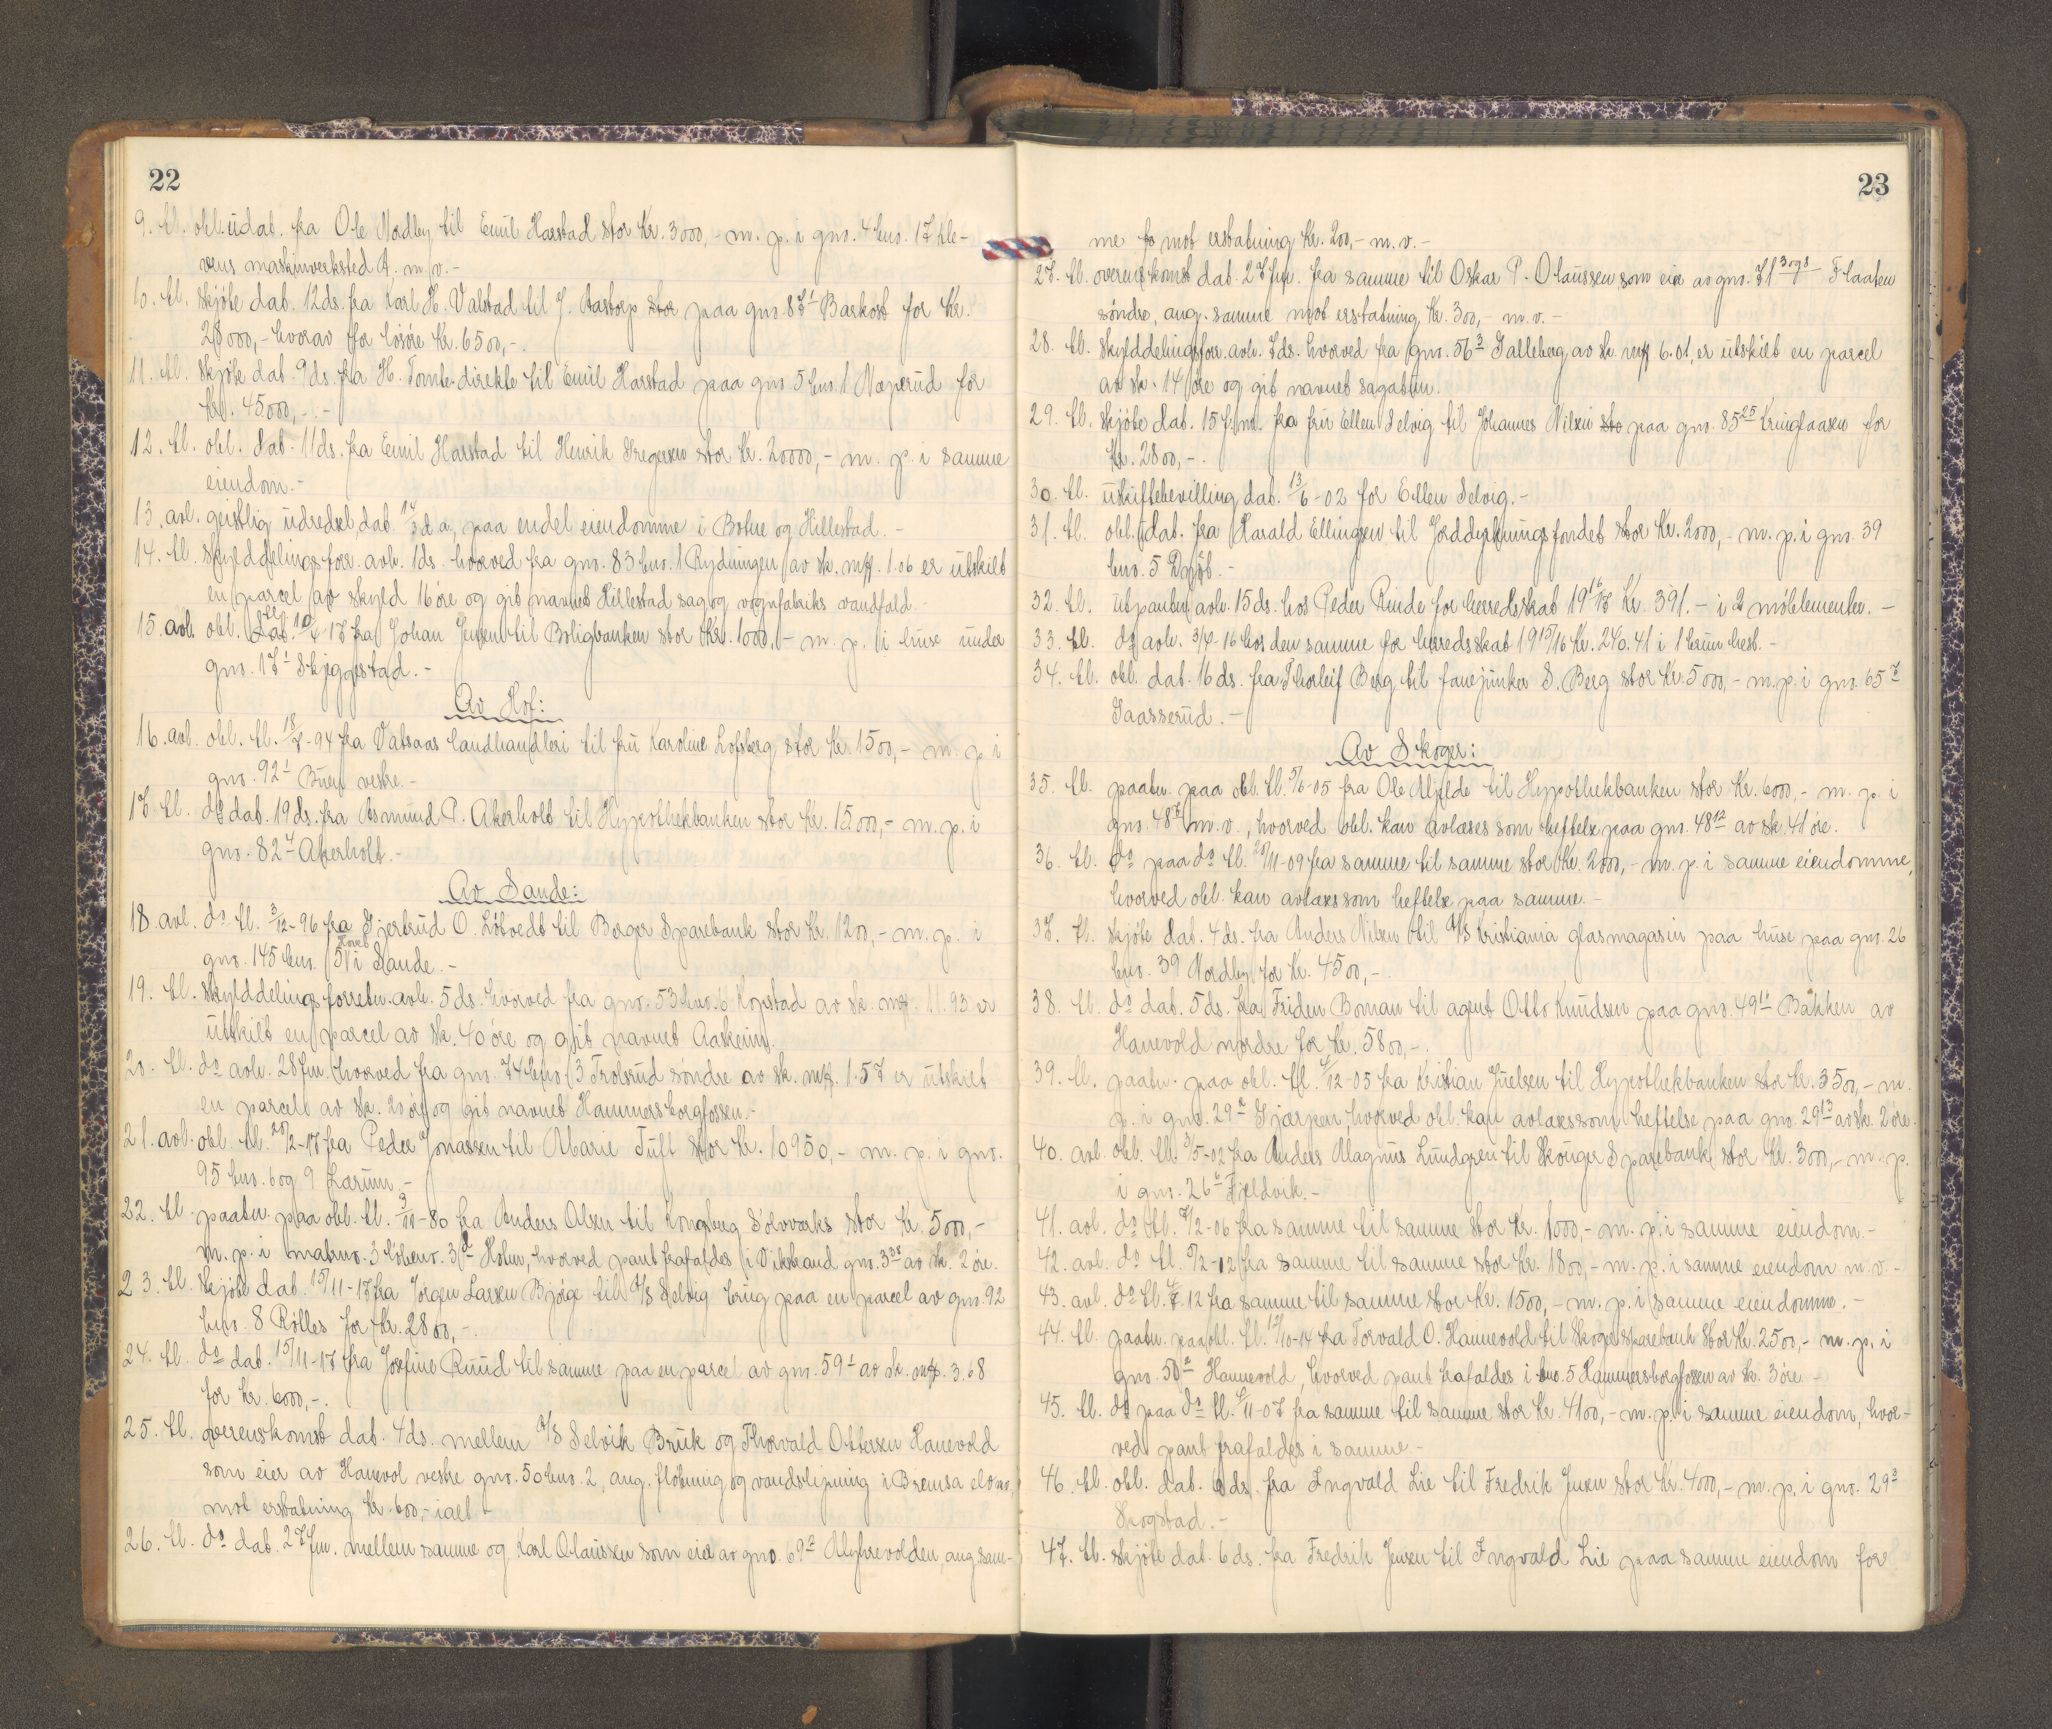 22
9. tl. obl. udat. fra Ole Nordby til Emil Harstad stor Kr. 3000,- m. p. i gno. 4 bno. 17 Kle-
vens maskinverksted A. m/v.-
10. tl. Skjøte dat. 12 ds. fra Karl H. Valstad til J. Aastorp stor paa gno. 87¹ Barkost for Kr.
28000,- hvorav for løsøre Kr. 6500,-.
11. tl. Skjøte dat. 9 ds. fra H. Tomte direkte til Emil Harstad paa gno 5 bno. 1 Næperud for
Kr. 45000,-.-
12. tl. obl. dat. 11 ds. fra Emil Harstad til Henrik Gregersen stor Kr. 20000,- m. p. i samme
eiendom.-
13. avl. geistlig udredsel, dat. 14/3 d.a. paa endel eiendomme i Botne og Hillestad.-
14. tl. Skylddelingsforr. avh. 1 ds. hvorved fra gno. 83 bno. 1 Rydningen av sk. mk. 1.06 er utskilt
en parcel av skyld 16 øre og git navnet Hillestad sag og vognfabriks vandfald.-
15. avl. obl. tl. dat. 10/4 17 fra Johan Jensen til Boligbanken stor Kr. 1000,- m. p. i huse under
gno. 17¹ Skjeggestad.-
Av Hof:
16. avl. obl. tl. 18/7-94 fra Vatsaas landhandleri til fru Karoline Lofsberg stor Kr. 1500,- m. p. i
gno. 92¹ Buen vestre.-
17. tl. do dat. 19 ds. fra Asmund P. Akerholt til Hypothekbanken stor Kr. 15000,- m. p. i
gno. 82⁴ Akerholt.-
Av Sande:
18. avl. do tl. 3/12-96 fra Gjertrud O. Løtvedt til Berger Sparebank stor Kr. 1200,- m. p. i
gno. 145 bno. 5 i Sande.-
19. tl. Skylddelingsforretn. avh. 5 ds. hvorved fra gno. 53 bno. 6 Kopstad av sk. mk. 11.93 er
utskilt en parcel av sk. 40 øre og git navnet Aaskeim.
20. tl. do avh. 28 f.m. hvorved fra gno. 74 bno. 3 Trolsrud søndre av sk. mk. 1.57 er utskilt
en parcel av sk. 20 øre og git navnet Hammersborgfossen.-
21. avl. obl. tl. 20/2-17 fra Peder Jonassen til Marie Tuft stor Kr. 10950,- m. p. i gno.
95 bno. 6 og 9 Larum.-
22. tl. paatn. paa obl. tl. 3/11-80 fra Anders Olsen til Kongsberg Sølvverks stor Kr. 5000,-
m. p. i matrno. 3 løbenr. 3 d Holm, hvorved pant frafaldes i Vikstrand gno. 3³⁸ av sk. 2 øre.
23. tl. Skjøte dat. 15/11-17 fra Jørgen Larsen Bjørge til A/S Selvig brug paa en parcel av gno. 92
bno. 8 Rølles for Kr. 2800,-.
24. tl. do dat. 15/11-17 fra Josefine Ruud til samme paa en parcel av gno. 59¹ av sk. mk. 3.68
for Kr. 6000,-.
25. tl. overenskomst dat. 4 ds. mellem A/S Selvik Bruk og Thorvald Ottersen Hanevold
som eier av Hanevol vestre gno. 50 bno. 2, ang. fløtning og vandstigning i Bremsa elv m.v.
mot erstatning Kr. 600,- ialt.-
26. tl. do dat. 27 f.m. mellem samme og Karl Olaussen som eier av gno. 69² Myhrevolden, ang sam-
23
me fo mot erstatning Kr. 200,- m. v.-
27. tl. overenskomst dat. 27 f.m. fra samme til Oskar P. Olaussen som eier av gno. 71 3 og 5 Flaaten
søndre, ang. samme mot erstatning Kr. 300,- m. v.-
28. tl. Skylddelingsforr. avh. 7 ds. hvorved fra gno. 56³ Galleberg av sk. mk 6.01, er utskilt en parcel
av sk. 14 øre og git navnet Sagatun.
29. tl. Skjøte dat. 15 f.m. fra fru Ellen Selvig til Johannes Nilsen sto paa gno. 85²⁵ Kringlaasen for
Kr. 2800,-.
30. tl. uskiftebevilling dat. 13/6-02 for Ellen Selvig.-
31. tl. obl. udat. fra Harald Ellingsen til Jorddyrkningsfondet stor Kr. 2000,- m. p. i gno. 39
bno. 5 Døjøb.-
32. tl. Utpantn. avh. 15 ds. hos Peder Rinde for herredsskat 19 16/17 Kr. 391.- i 2 møblementer.-
33. tl. do avh. 3/4-16 hos den samme for herredsskat 19 15/16 Kr. 240.41 i 1 brun hest.-
34. tl. obl. dat. 16 ds. fra Thorleif Berg til fanejunker S. Berg stor Kr. 5000,- m. p. i gno. 65⁷
Gaasserud.-
Av Skoger:
35. tl. paatn. paa obl. tl. 5/6-05 fra Ole Mjelde til Hypothekbanken stor Kr. 6000,- m. p. i
gno. 48⁷ m. v., hvorved obl. kan avlæses som heftelse paa gno. 48¹² av sk. 41 øre.
36. tl. do paa do tl. 20/11-09 fra samme til samme stor Kr. 2000,- m. p. i samme eiendomme,
hvorved obl. kan avlæses som heftelse paa samme.-
37. tl. Skjøte dat. 4 ds. fra Anders Nilsen til A/S Kristiania glasmagasin paa huse paa gno. 26
bno. 39 Nordby for Kr. 4500,-.
38. tl. do dat. 5 ds. fra Friden Boman til agent Otto Knudsen paa gno. 49¹¹ Bakken av
Hanevold nordre for Kr. 5800,-.
39. tl. paatn. paa obl. tl. 4/12-05 fra Kristian Juelsen til Hypothekbanken stor Kr. 3500,- m.
p. i gno. 29² Gjærpen, hvorved obl. kan avlæses som heftelse paa gno. 29¹³ av sk. 2 øre.
40. avl. obl. tl. 3/5-02 fra Anders Magnus Lundgren til Skouger Sparebank stor Kr. 3000,- m. p.
i gno. 26⁶ Fjeldvik.-
41. avl. do tl. 7/2-06 fra samme til samme stor Kr. 1000,- m. p. i samme eiendom.-
42. avl. do tl. 5/2-12 fra samme til samme stor Kr. 1800,- m. p. i samme eiendom m. v.-
43. avl. do tl. 4/7 12 fra samme til samme stor Kr. 1500,- m. p. i samme eiendomme.-
44. tl. paatn. paa obl. tl. 12/10-14 fra Torvald O. Hannevold til Skoger Sparebank stor Kr. 2500,- m. p. i
gno. 50² Hannevold, hvorved pant frafaldes i bno. 5 Hammersborgfossen av sk. 3 øre.-
45. tl. do paa do tl. 4/11-07 fra samme til samme stor Kr. 4100,- m. p. i samme eiendom, hvor-
ved pant frafaldes i samme.-
46. tl. obl. dat. 6 ds. fra Ingvald Lie til Fredrik Jensen stor Kr. 4000,- m. p. i gno. 29³
Skogstad.-
47. tl. Skjøte dat. 6 ds. fra Fredrik Jensen til Ingvald Lie paa samme eiendom for